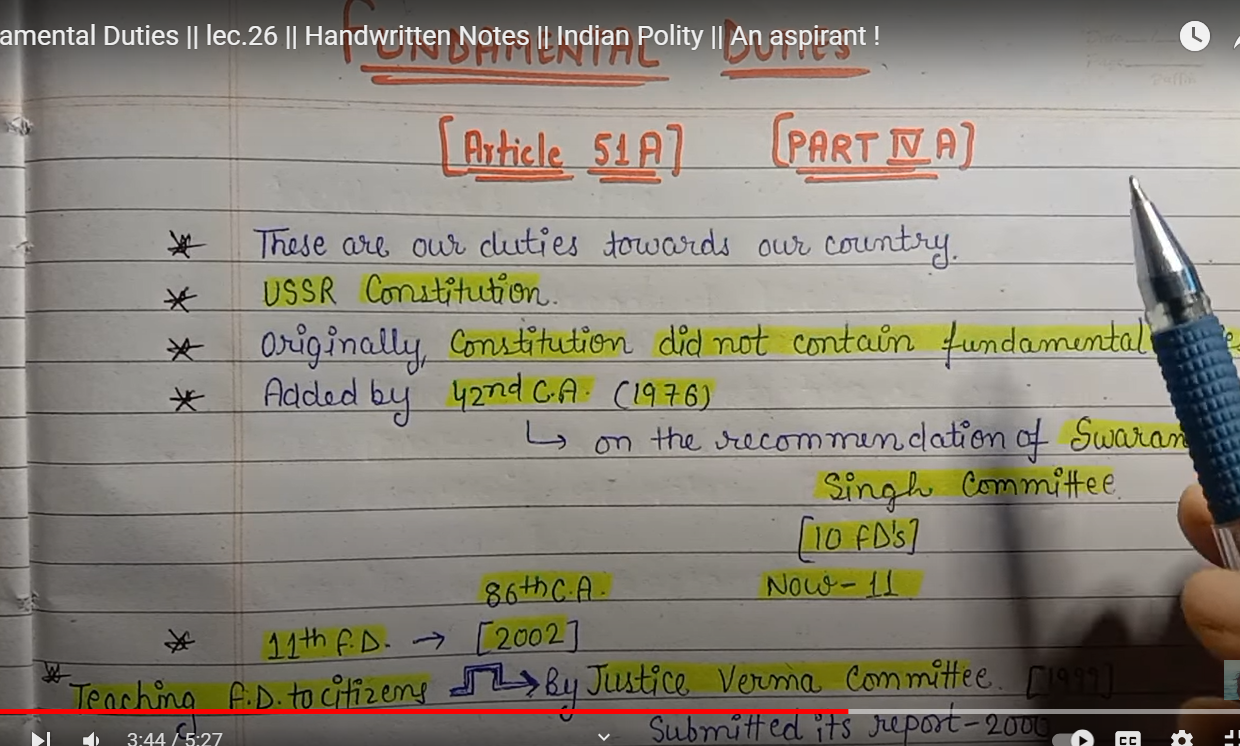 amental Duties || lec.26 || Handwritten Notes || Indian Polity || An aspirant !
FUNDAMENTAL DUTIES
[Article 51A] [PART IV A]
These are our duties towards our country.
USSR Constitution.
Originally, Constitution did not contain fundamental
Added by 42nd C.A. (1976)
on the recommendation of Swaran
Singh Committee
[10 FD's]
86th C.A. Now - 11
11th F.D. → [2002]
Teaching F.D. to citizens By Justice Verma Committee. [1999]
Submitted its report - 2000
3:44 / 5:27